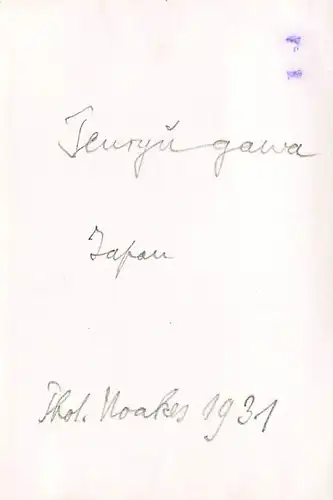 Tenryū gawa
Japan
Phot. Noakes 1931